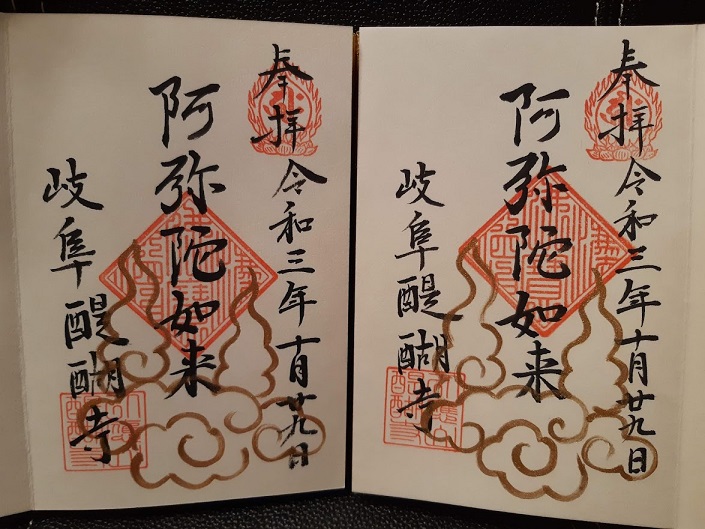 奉拝 令和三年十月廿九日
阿弥陀如来
岐阜醍醐寺
奉拝 令和三年十月廿九日
阿弥陀如来
岐阜醍醐寺